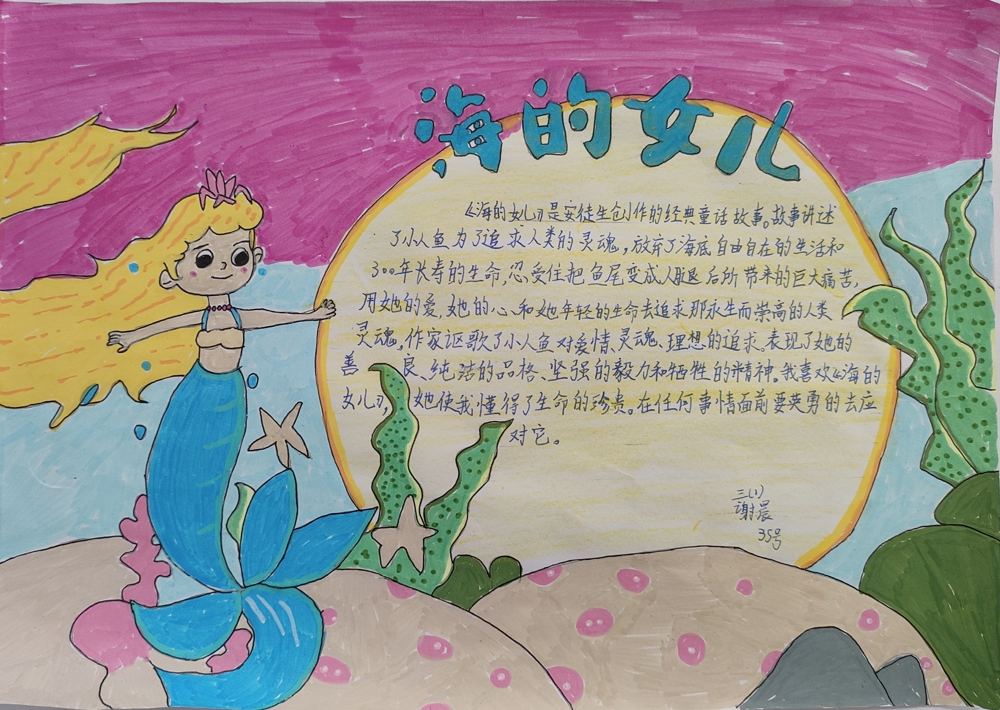 海的女儿
《海的女儿》是安徒生创作的经典童话故事。故事讲述
了小人鱼为了追求人类的灵魂，放弃了海底自由自在的生活和
300年长寿的生命，忍受住把鱼尾变成人腿后所带来的巨大痛苦，
用她的爱，她的心和她年轻的生命去追求那永生而崇高的人类
灵魂。作家讴歌了小人鱼对爱情、灵魂、理想的追求。表现了她的
善良、纯洁的品格、坚强的毅力和牺牲的精神。我喜欢《海的
女儿》，她使我懂得了生命的珍贵。在任何事情面前要英勇的去应
对它。
三(1)
谢晨
35号